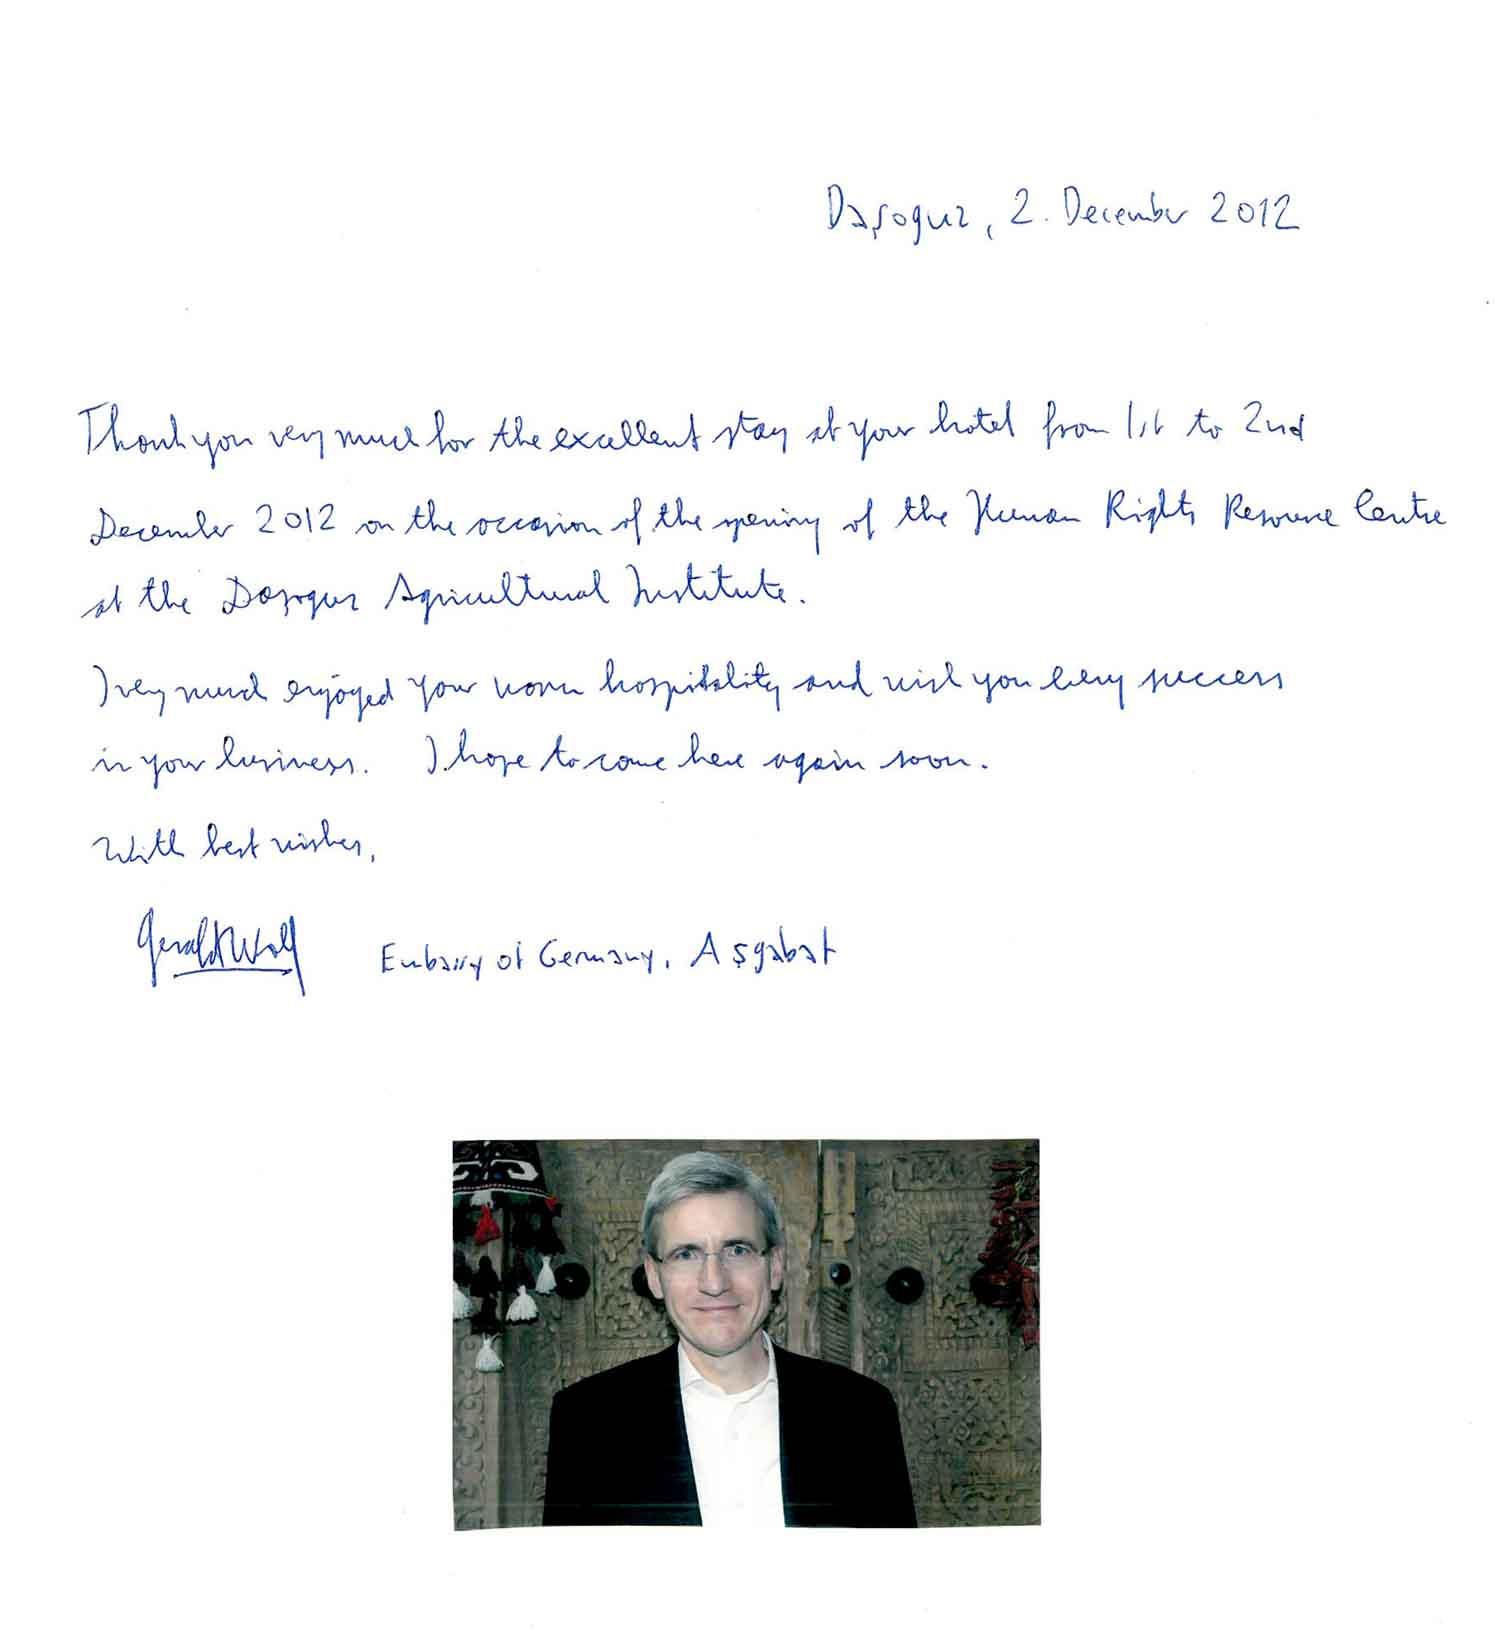 Daşoguz, 2. December 2012
Thank you very much for the excellent stay at your hotel from 1st to 2nd
December 2012 on the occasion of the opening of the Human Rights Resource Centre
at the Daşoguz Agricultural Institute.
I very much enjoyed your warm hospitality and wish you every success
in your business. I hope to come here again soon.
With best wishes,
Gerald Wolf Embassy of Germany, Aşgabat